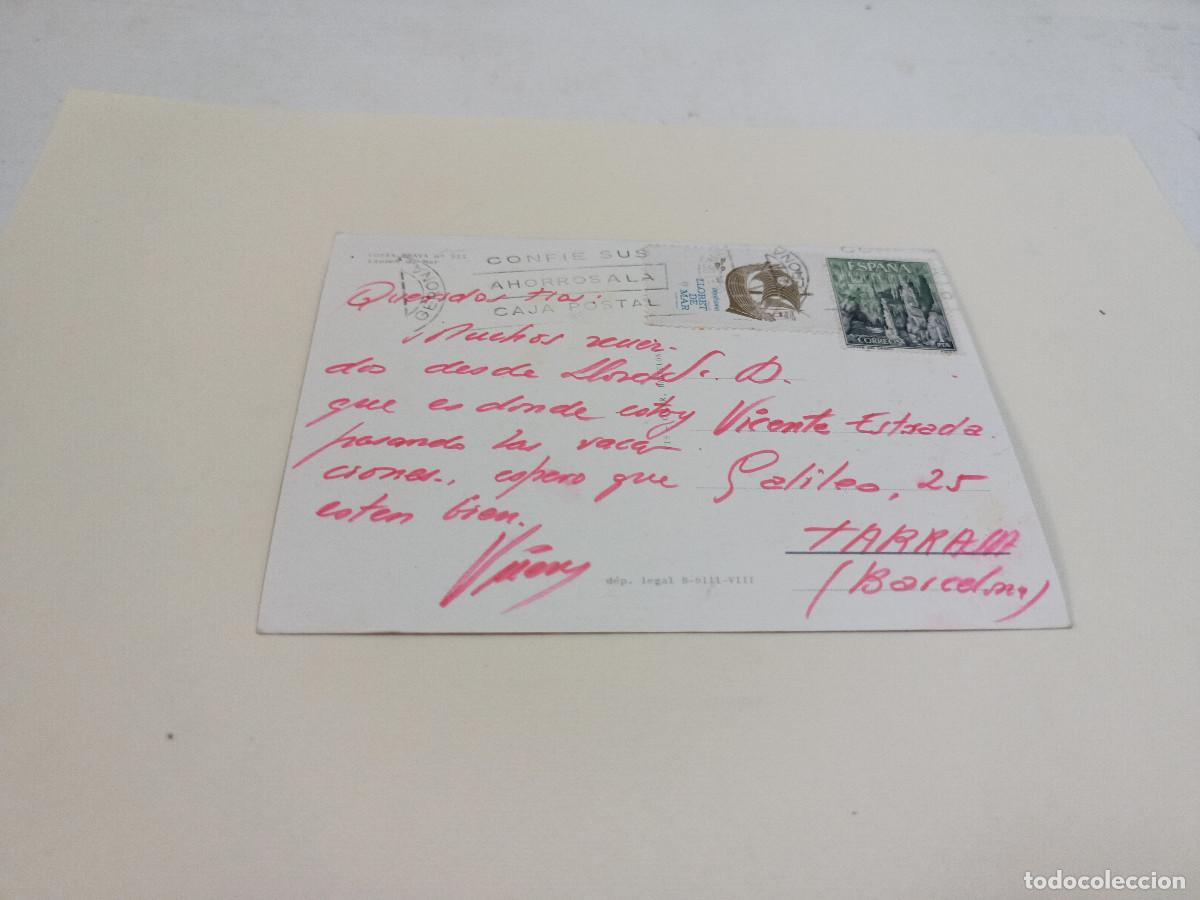 COSTA BRAVA Nº
CONFIE SUS
AHORROS A LA
CAJA POSTAL
GERONA
GERONA
LLORET
DE
MAR
ESPAÑA
CORREOS
PTA
Queridos tios:
Muchos recuer-
dos desde Lloret
que es donde estoy
pasando las vaca-
ciones, espero que
esten bien.
S. D.
Vicente Estrada.
Galileo, 25
TARRASA
(Barcelona)
dép. legal B-6111-VIII
todocoleccion